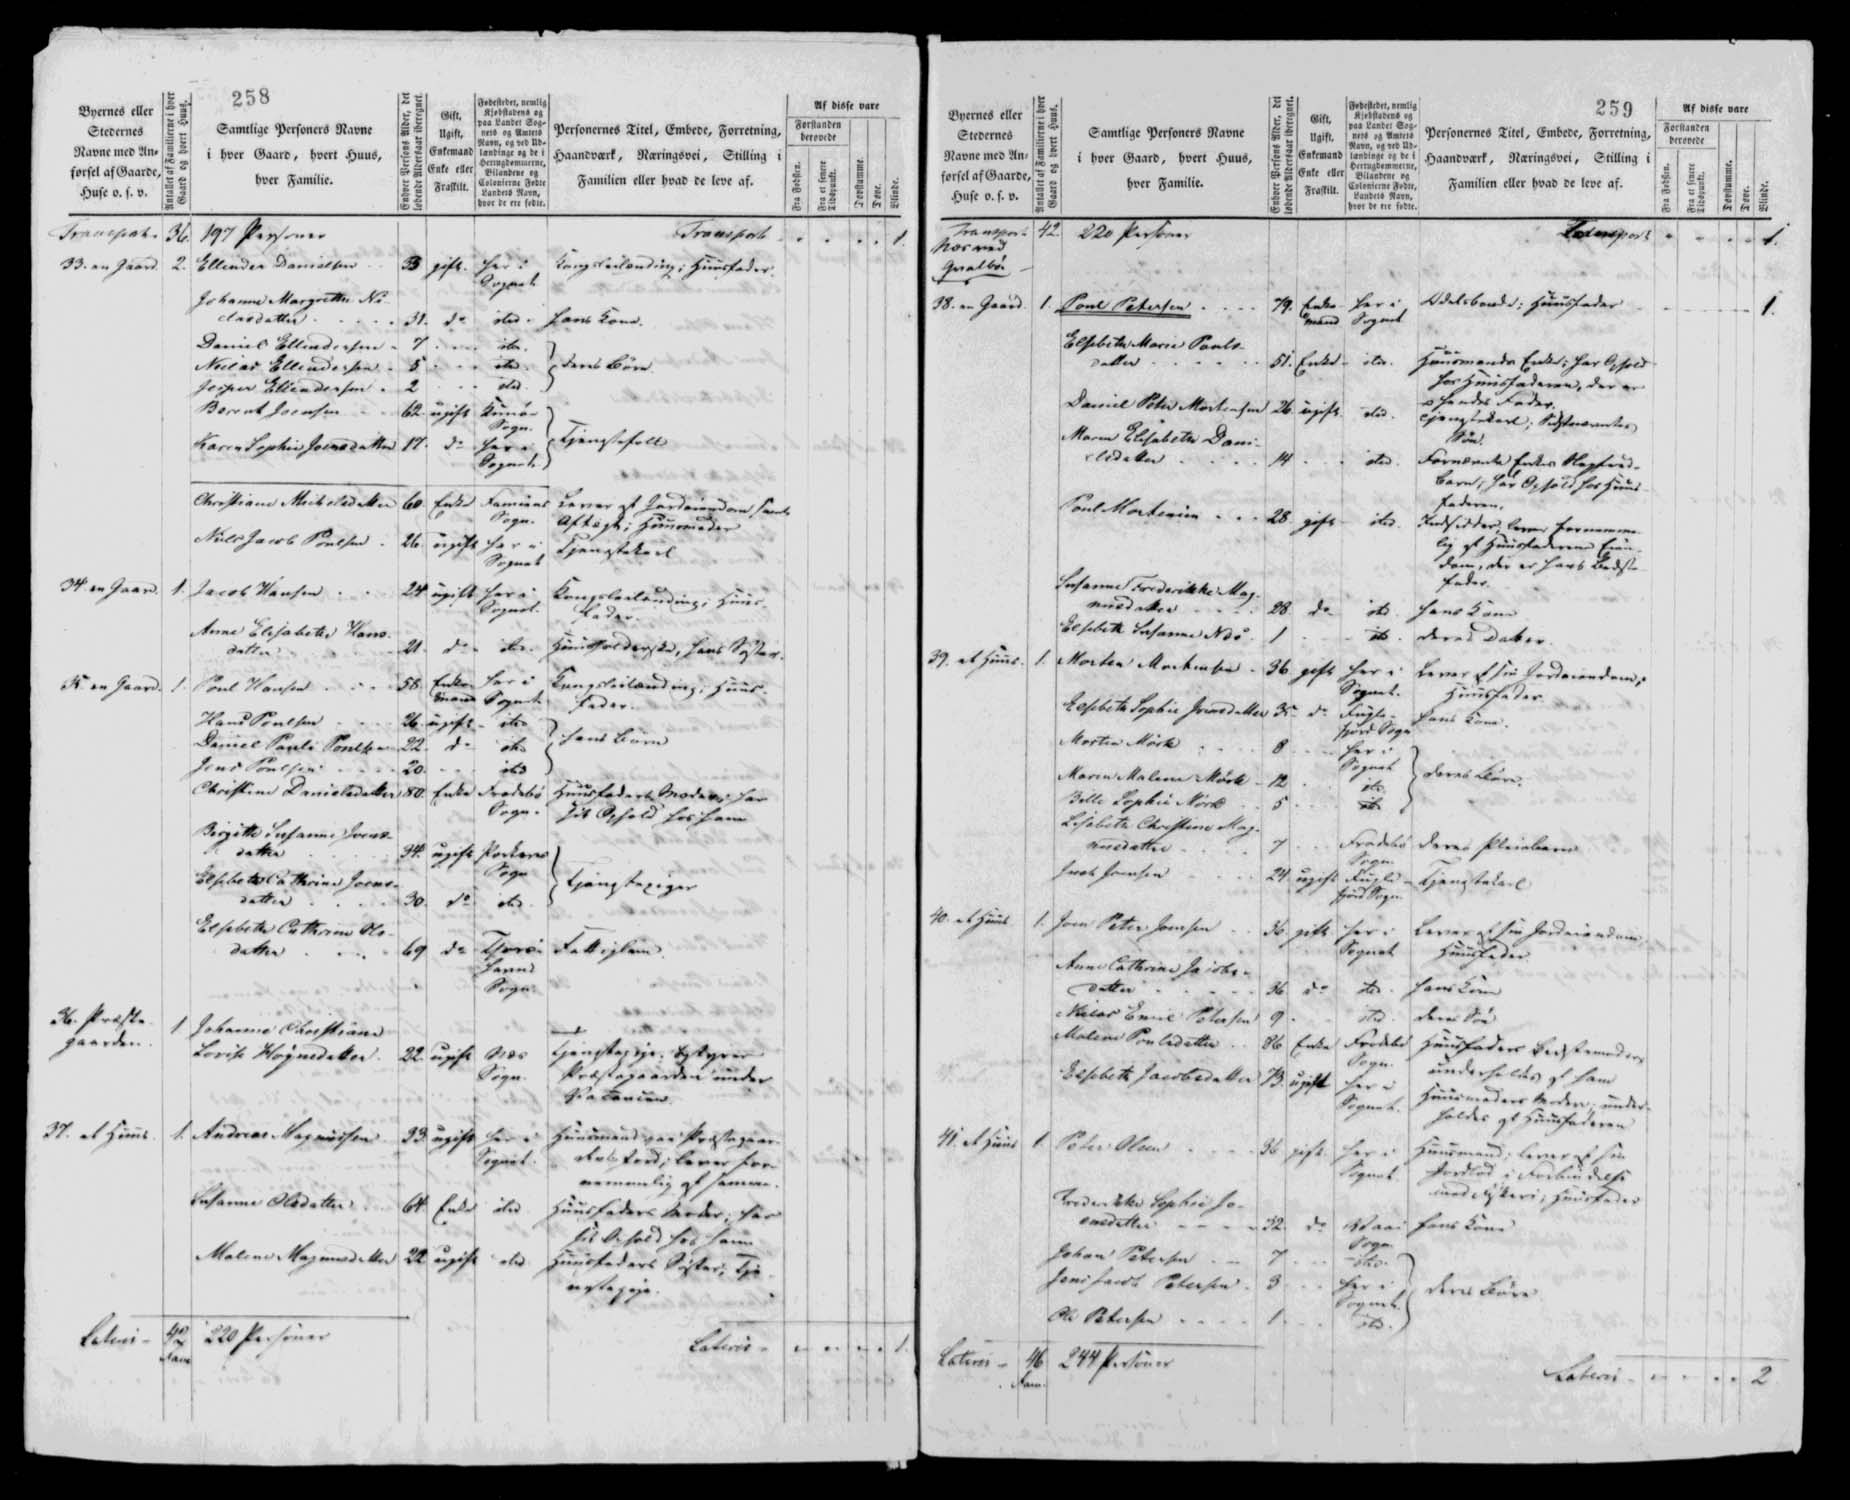 258
Byernes eller Stedernes Navne med Anførsel af Gaarde, Huse o. s. v.
Antallet af Familierne i hver Gaard og hvert Huus.
Samtlige Personers Navne i hver Gaard, hvert Huus, hver Familie.
Enhver Persons Alder, det løbende Aldersaar iberegnet.
Gift, Ugift, Enkemand Enke eller Fraskilt.
Fødestedet, nemlig Kjøbstadens og paa Landet Sognets og Amtets Navn, og ved Udlændinge og de i Hertugdømmerne, Bilandene og Colonierne Fødte, Landets Navn, hvor de ere fødte.
Personernes Titel, Embede, Forretning, Haandværk, Næringsvei, Stilling i Familien eller hvad de leve af.
Af disse vare
Forstanden berøvede
Fra Fødslen.
Fra et senere Tidspunkt.
Døvstumme.
Døve.
Blinde.
Transport 36. 197 Personer Transport 1.
33. en Gaard. 2. Ellender Danielsen 33 gift. her i Sognet Kongsleilænding; Huusfader.
Johanne Margrethe Niclasdatter 31. do ibd. hans Kone.
Daniel Ellendersen 7 ibd.
Niclas Ellendersen 5 ibd. deres Børn.
Jesper Ellendersen 2 ibd.
Berent Joensen 62. ugift Kunø Sogn.
Karen Sophie Joensdatter 17. do her i Sognet Tjenestefolk
Christiane Michelsdatter 60. Enke Famiens Sogn. Lever af Jordeiendom samt Aftægt; Huusmoder
Niels Jacob Poulsen 26. ugift her i Sognet Tjenestekarl
34. en Gaard. 1. Jacob Hansen 24 ugift her i Sognet. Kongsleilænding; Huusfader.
Anne Elisabeth Hansdatter 21. do ibd. Huusholderske, hans Søster.
35 en Gaard. 1. Poul Hansen 58. Enkemand her i Sognet Kongsleilænding; Huusfader.
Hans Poulsen 26. ugift ibd
Daniel Pauli Poulsen 22. do ibd hans Børn
Jens Poulsen 20. ibd
Christine Danielsdatter 80. Enke Frodebø Sogn. Huusfaders Moder; har sit Ophold hos ham
Birgitte Susanne Joensdatter 34. ugift Porkeres Sogn
Elsebeth Cathrine Joensdatter 30. do ibd. Tjenestepiger
Elsebeth Cathrine Olsdatter 69 do Sogn. Fattiglem.
36. Præstegaarden. 1 Johanne Christiane Lovise Høgnedatter. 22. ugift Næs Sogn. Tjenestepige; bestyrer Præstegaarden under Vacancen.
37. et Huus. 1. Andreas Magnussen 33 ugift her i Sognet. Huusmand paa Præstegaardens Jord; lever fornemmelig af samme.
Susanne Olsdatter 64 Enke ibd Huusfaders Moder; har sit Ophold hos ham
Malene Magnusdatter 22 ugift ibd Huusfaders Søster; Tjenestepige.
Lateris 42 Fam 220 Personer Lateris 1.
259
Byernes eller Stedernes Navne med Anførsel af Gaarde, Huse o. s. v.
Antallet af Familierne i hver Gaard og hvert Huus.
Samtlige Personers Navne i hver Gaard, hvert Huus, hver Familie.
Enhver Persons Alder, det løbende Aldersaar iberegnet.
Gift, Ugift, Enkemand Enke eller Fraskilt.
Fødestedet, nemlig Kjøbstadens og paa Landet Sognets og Amtets Navn, og ved Udlændinge og de i Hertugdømmerne, Bilandene og Colonierne Fødte, Landets Navn, hvor de ere fødte.
Personernes Titel, Embede, Forretning, Haandværk, Næringsvei, Stilling i Familien eller hvad de leve af.
Af disse vare
Forstanden berøvede
Fra Fødslen.
Fra et senere Tidspunkt.
Døvstumme.
Døve.
Blinde.
Transport 42. 220 Personer Transport 1.
Næs ved Qvalbø
38. en Gaard. 1. Poul Petersen 79. Enkemand her i Sognet Odelsbonde; Huusfader 1.
Elsebeth Marie Poulsdatter 51. Enke ibd. Huusmands Enke; har Ophold hos Huusfaderen, der er hendes Fader.
Daniel Peter Mortensen 26. ugift ibd. Tjenestekarl; Sidstnævntes Søn.
Maren Elisabeth Danielsdatter 14 ibd. Fornævnte Enkes Slegfredbarn; har Ophold hos Huusfaderen.
Poul Mortensen 28. gift ibd. Indsidder, lever fornemmelig af Huusfaderens Eiendom, der er hans Bedstefader.
Susanne Frederikke Magnusdatter 28. do ibd hans Kone
Elsebeth Susanne 1 ibd. deres Datter.
39. et Huus. 1. Morten Mortensen 36. gift her i Sognet. Lever af sin Jordeiendom; Huusfader.
Elsebeth Sophie Joensdatter 35 do Fuglefjord Sogn hans Kone.
Morten Mørk 8 her i Sognet
Maren Malene Mørk 12 ibd deres Børn.
Bille Sophie Mørk 5 ibd
Lisabeth Christine Magnusdatter 7 Frodebø Sogn. deres Pleiebarn
Jacob Joensen 24. ugift Fuglefjord Sogn. Tjenestekarl
40. et Huus 1. Joen Peter Joensen 36. gift her i Sognet Lever af sin Jordeiendom, Huusfader
Anne Cathrine Jacobsdatter 36 do ibd. hans Kone
Niclas Emil Petersen 9 ibd. deres Søn
Malene Poulsdatter 86 Enke Frodebø Sogn. Huusfaders Bedstemoder; underholdes af ham
Elsebeth Jacobsdatter 73. ugift her i Sognet. Huusmoders Moder; underholdes af Huusfaderen
41. et Huus 1. Peter Olsen 36 gift her i Sognet. Huusmand; lever af sin Jordlod i Forbindelse med Fiskeri; Huusfader
Frederikke Sophie Joensdatter 32. do Waai Sogn. hans Kone
Johan Petersen 7 ibd.
Jens Jacob Petersen 3 her i Sognet. deres Børn
Ole Petersen 1 ibd.
Lateris 46 Fam. 244 Personer Lateris 2